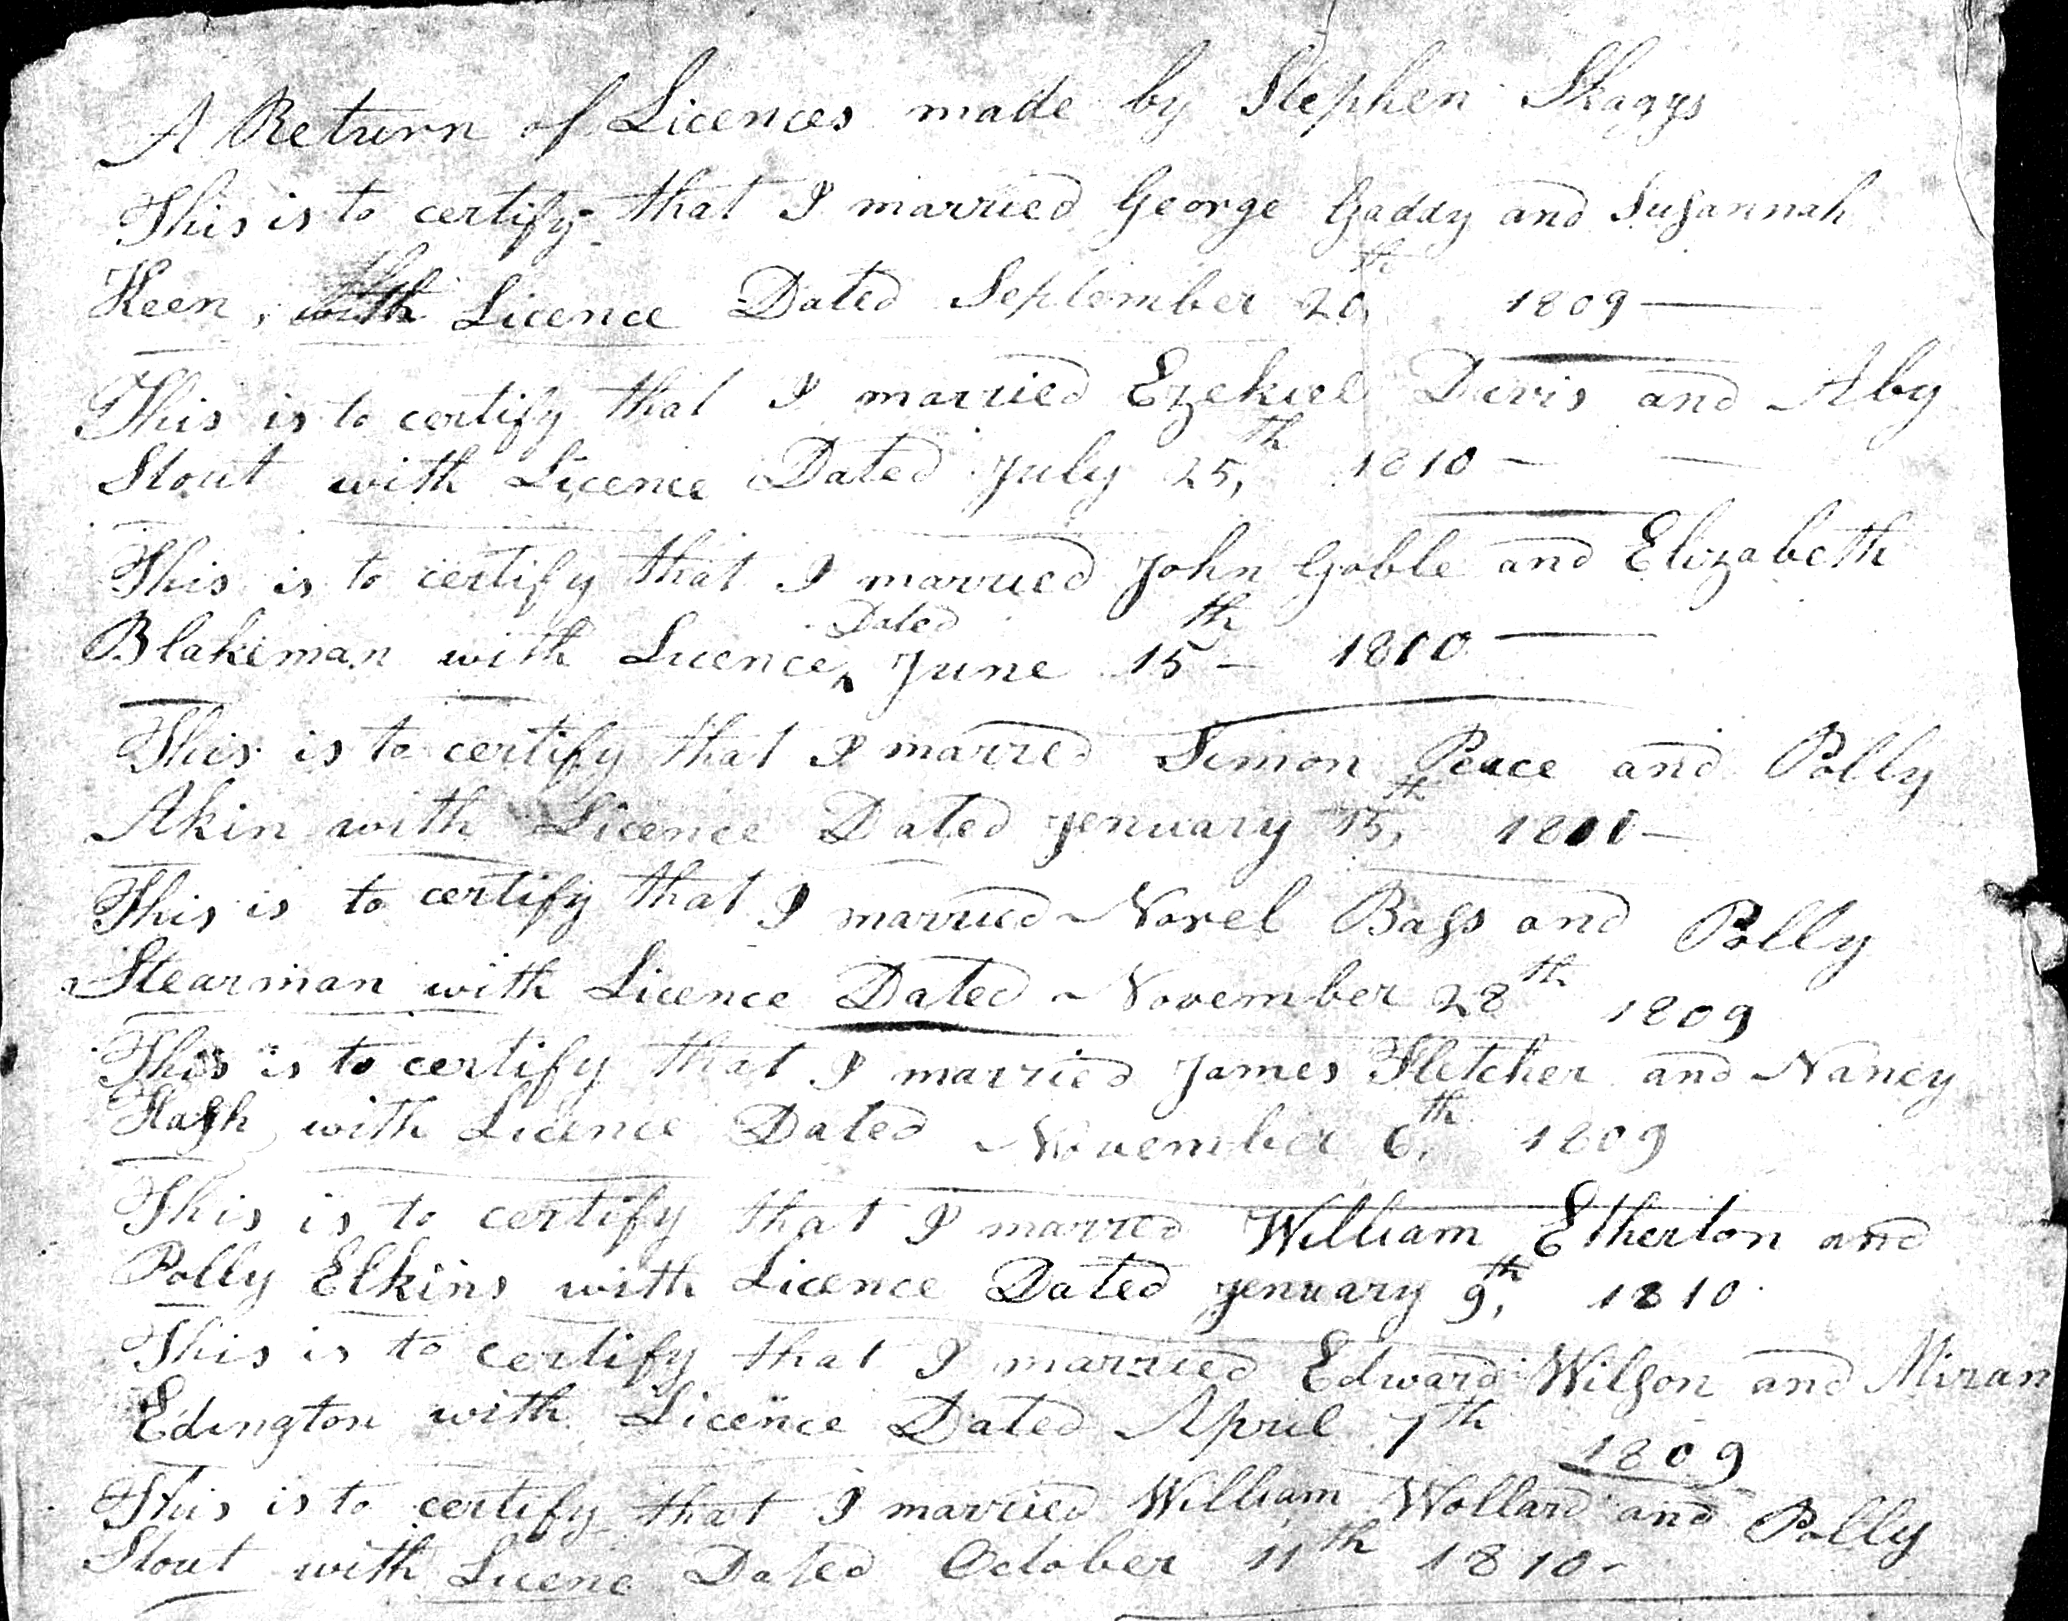 A Return of Licences made by Stephen Skaggs
This is to certify that I married George Gaddy and Susannah
Keen, with Licence Dated September 20th 1809
This is to certify that I married Ezekiel Davis and Aby
Stout with Licence Dated July 25th, 1810
This is to certify that I married John Goble and Elizabeth
Blakeman with Licence Dated June 15th 1810
This is to certify that I marred Simon Peace and Polly
Akin with Licence Dated Jenuary 15th, 1810
This is to certify that I married Novel Bass and Polly
Stearman with Licence Dated November 28th 1809
This is to certify that I married James Fletcher and Nancy
Hash with Licence Dated November 6th, 1809
This is to certify that I marred William Etherton and
Polly Elkins with Licence Dated Jenuary 9th, 1810
This is to certify that I married Edward Wilson and Miran
Edington with Licence Dated April 7th 1809
This is to certify that I married William Wollard and Polly
Stout with Licenc Dated October 11th 1810